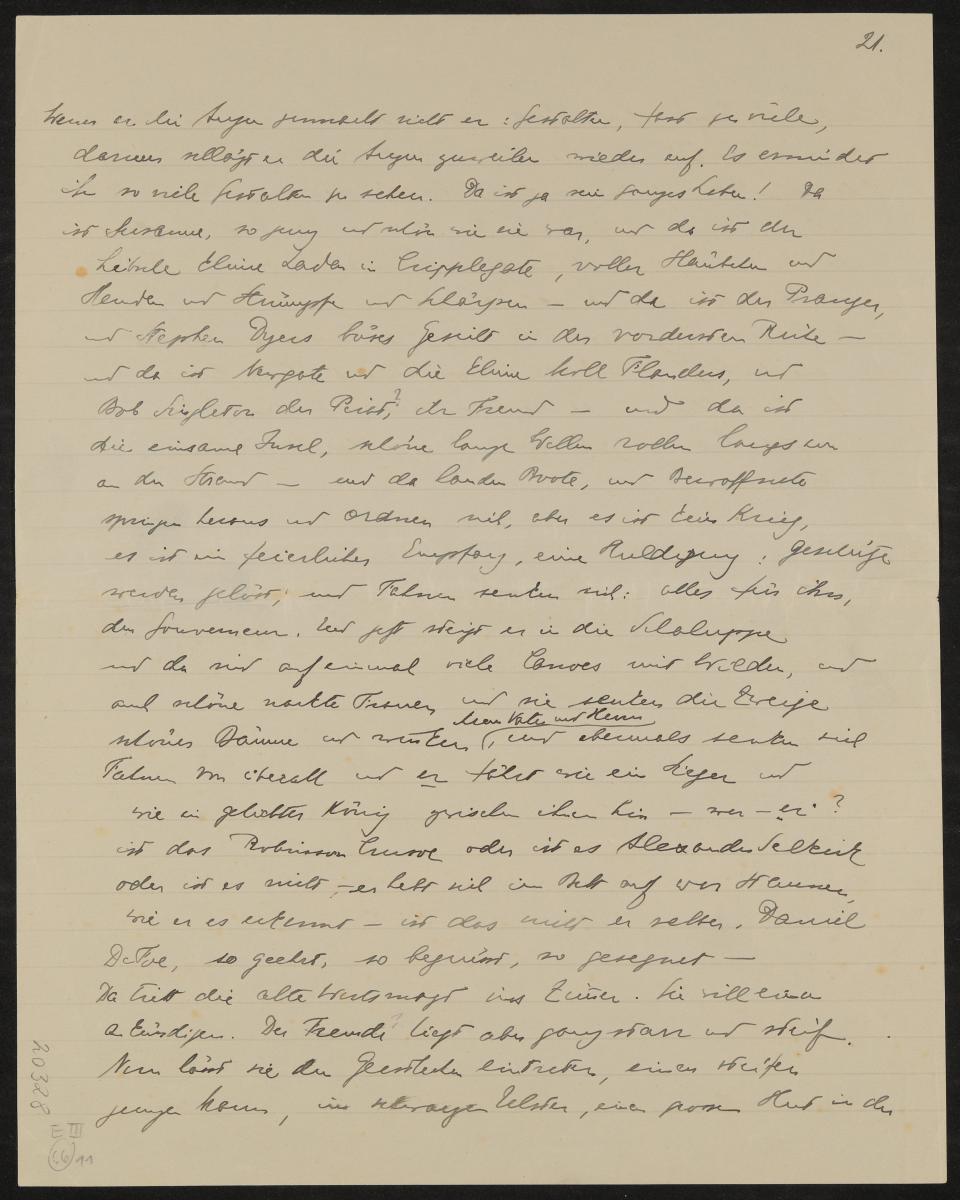 21.
Wenn er die Augen zumacht sieht er: Gestalten, fast zu viele,
darum schlägt er die Augen zuweilen wieder auf. Es ermüdet
ihn so viele Gestalten zu sehen. Da ist ja sein ganzes Leben! Da
ist Susanne, so jung und schön wie sie war, und da ist der
hübsche kleine Laden in Cripplegate, voller Häubchen und
Hemden und Strümpfe und Schärpen – und da ist der Pranger,
und Stephen Dyers böses Gesicht in der vordersten Reihe –
und da ist Newgate und die kleine Moll Flanders, und
Bob Singleton der Pirat, ? ihr Freund – und da ist
die einsame Insel, schöne lange Wellen rollen langsam
an den Strand – und da landen Boote, und Bewaffnete
springen heraus und ordnen sich, aber es ist kein Krieg,
es ist ein feierlicher Empfang, eine Huldigung: Geschütze
werden gelöst, und Fahnen senken sich: alles für ihn,
den Gouverneur. Und jetzt steigt er in die Schaluppe
und da sind auf einmal viele Canoes mit Wilden, und
auch schöne nackte Frauen und sie senken die Zweige
Mein Vater und Herr
schöner Bäume und winken, und abermals senken sich
Fahnen von überall und er fährt wie ein Sieger und
wie ein geliebter König zwischen ihnen hin – wer – er ?
ist das Robinson Crusoe oder ist es Alexander Selkirk
oder ist es nicht, – er hebt sich im Bett auf vor Staunen,
wie er es erkennt – ist das nicht er selber, Daniel
DeFoe, so geehrt, so begrüsst, so gesegnet –
Da tritt die alte Wirtsmagd ins Zimmer. Sie will einen
ankündigen. Der Fremde ? liegt aber ganz starr und steif.
Nun lässt sie den Geistlichen eintreten, einen steifen
jungen Mann, im schwarzen Ulster, einen grossen Hut in der
20328
E III
66 11